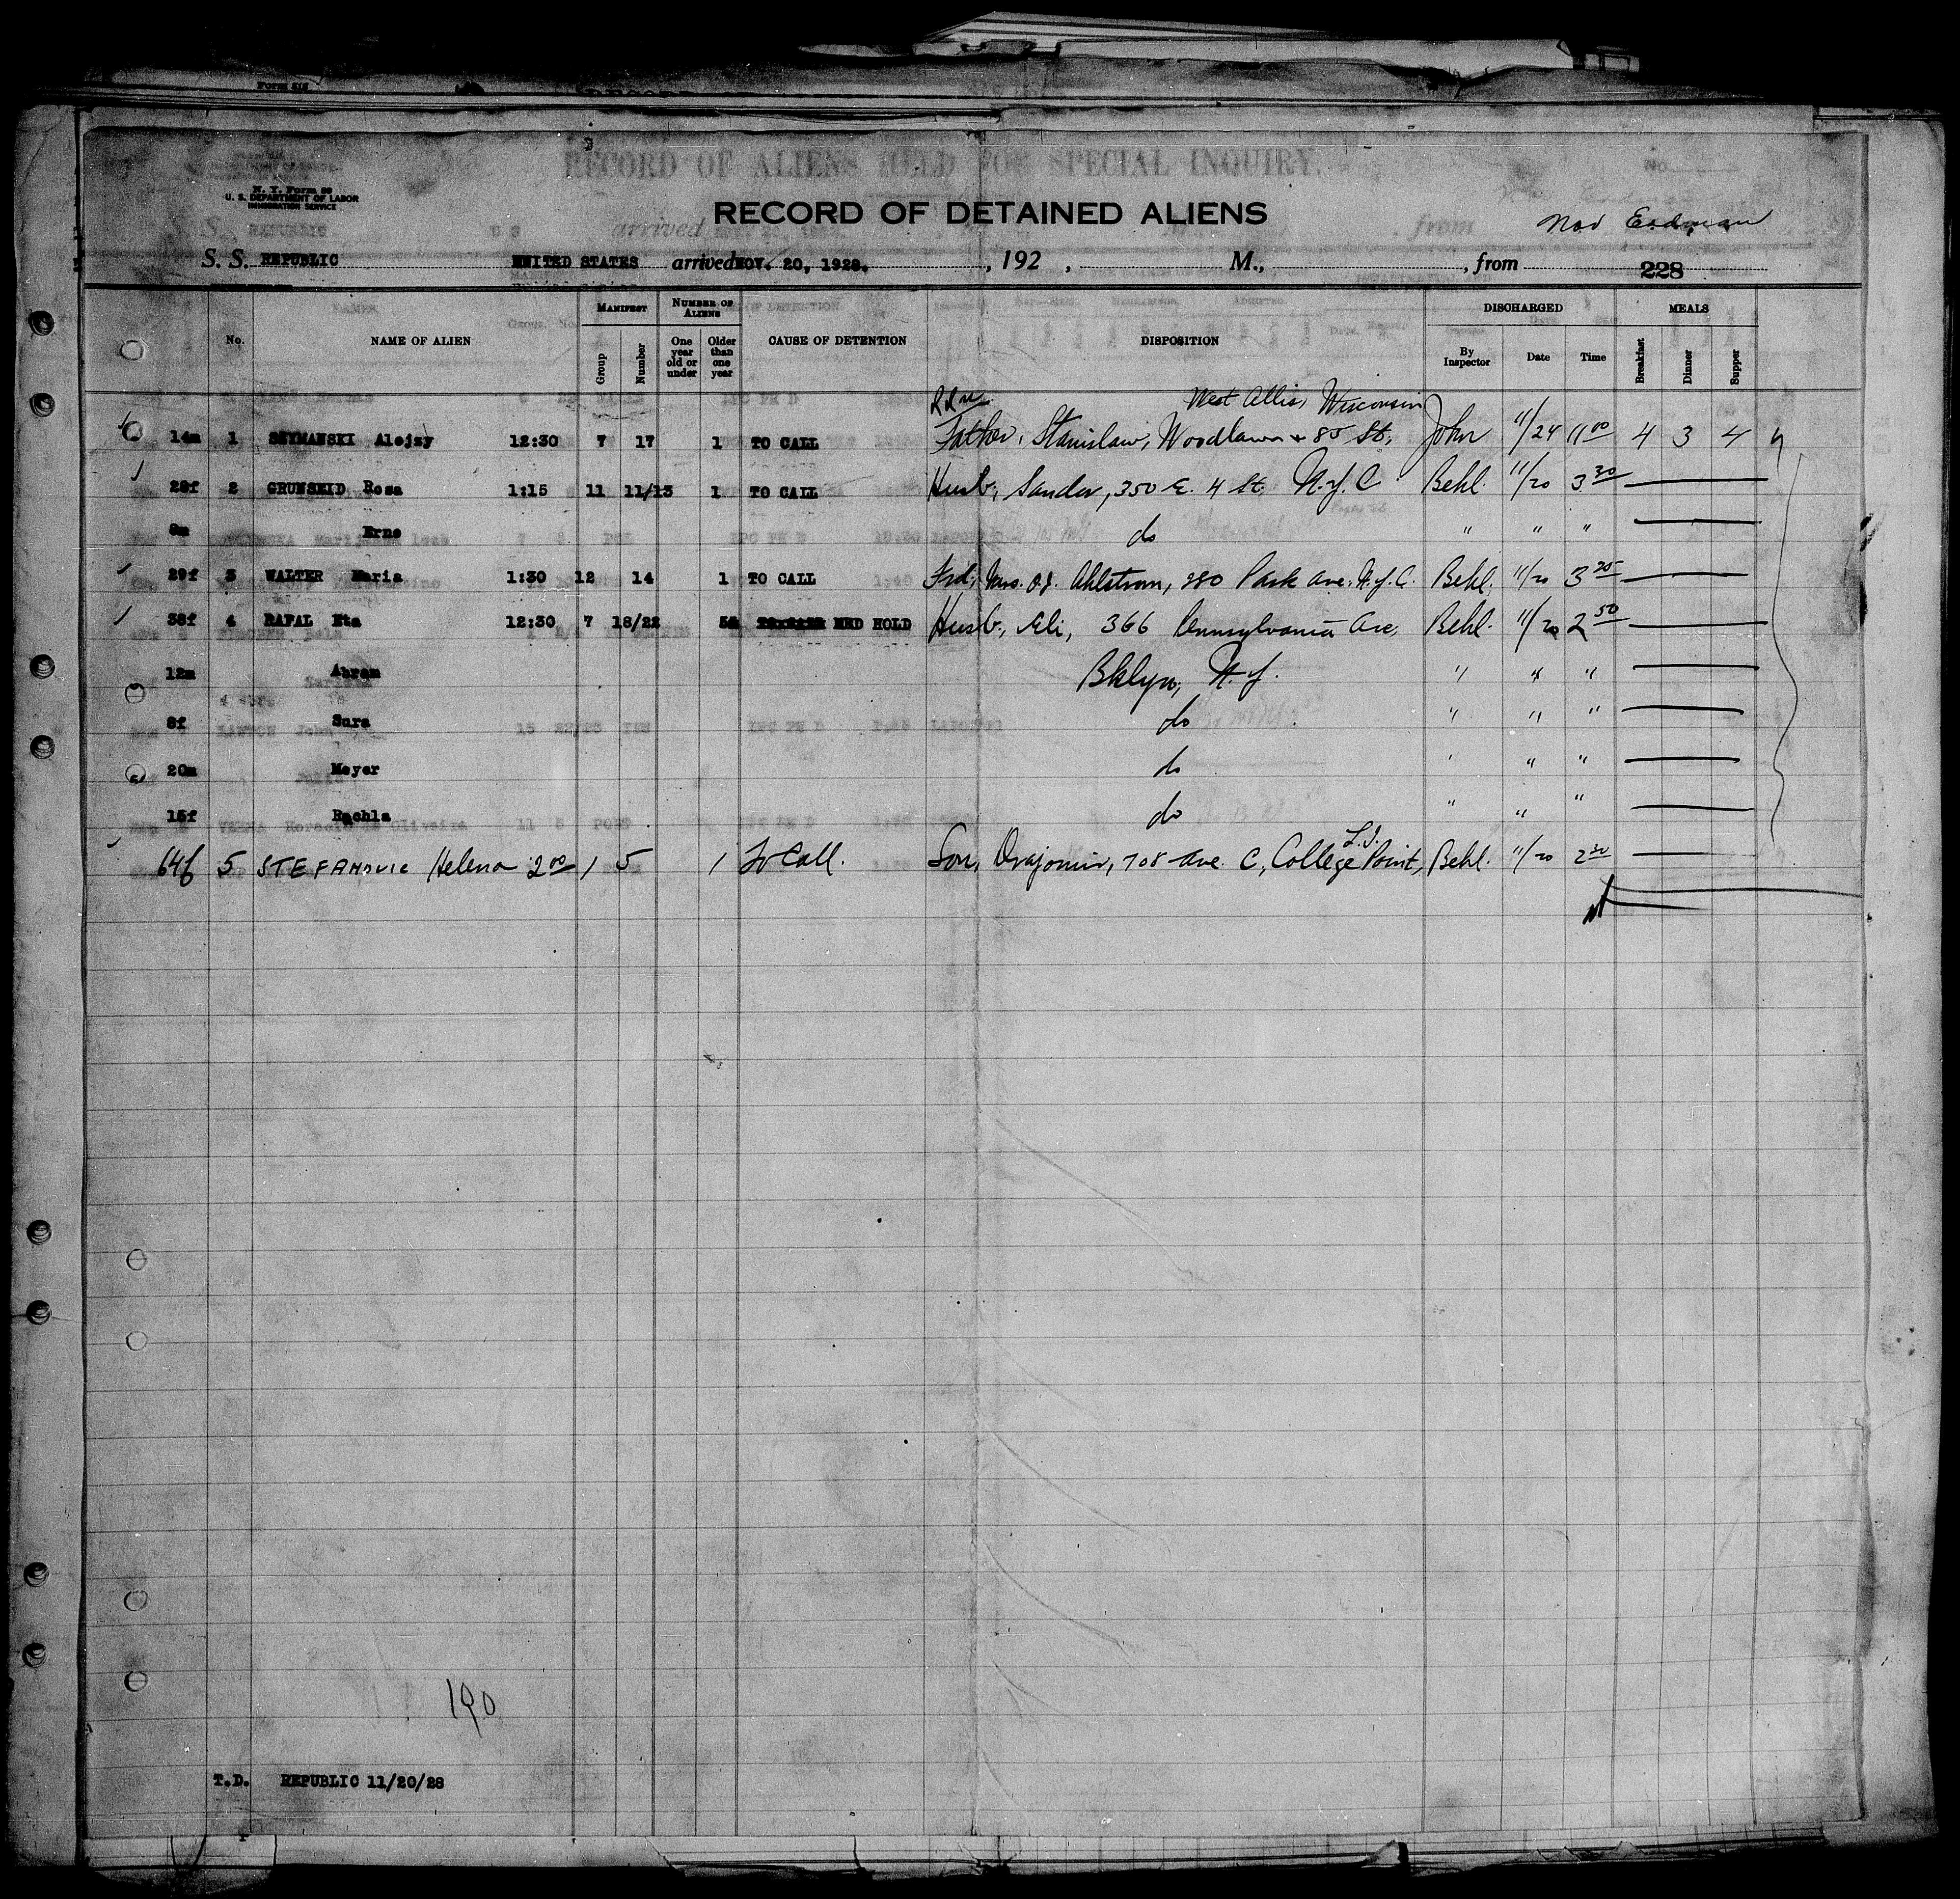 N. Y. Form 99
U. S. DEPARTMENT OF LABOR
IMMIGRATION SERVICE
RECORD OF ALIENS HELD FOR SPECIAL INQUIRY.
RECORD OF DETAINED ALIENS
S. S. REPUBLIC UNITED STATES arrived NOV. 20, 1928. , 192 , M., , from 228
No. NAME OF ALIEN MANIFEST NUMBER OF ALIENS CAUSE OF DETENTION DISPOSITION DISCHARGED MEALS
Group Number One year old or under Older than one year By Inspector Date Time Breakfast Dinner Supper
West Allis, Wisconsin
14m 1 SZYMANSKI Alojzy 12:30 7 17 1 TO CALL Father, Stanislaw, Woodlawn + 85 St. John 11/24 11 00 4 3 4
28f 2 GRUNSEID Rosa 1:15 11 11/13 1 TO CALL Husb, Sandor, 350 E. 4 St. N.Y.C. Behl. 11/20 3 30
Erno do " " "
29f 3 WALTER Maria 1:30 12 14 1 TO CALL Frd, Mrs. O.J. Ahlstrom, 280 Park Ave. N.Y.C. Behl. 11/20 3 25
38f 4 RAFAL Eta 12:30 7 18/22 MED HOLD Husb., Eli, 366 Pennsylvania Ave, Behl. 11/20 2 50
12m Abram Bklyn, N.Y. " " "
8f Sura do " " "
20m Meyer do " " "
15f Rachla do " " "
L.I.
64f 5 STEFANOVIC Helena 2 00 1 5 1 To Call. Son, Dragomir, 708 Ave. C, College Point, Behl. 11/20 2 30
190
T.D. REPUBLIC 11/20/28